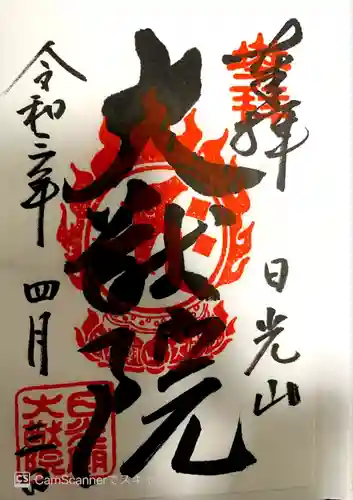 奉拝
日光山
大猷院
令和二年
四月
日光山
大猷院
CS CamScannerでスキャ